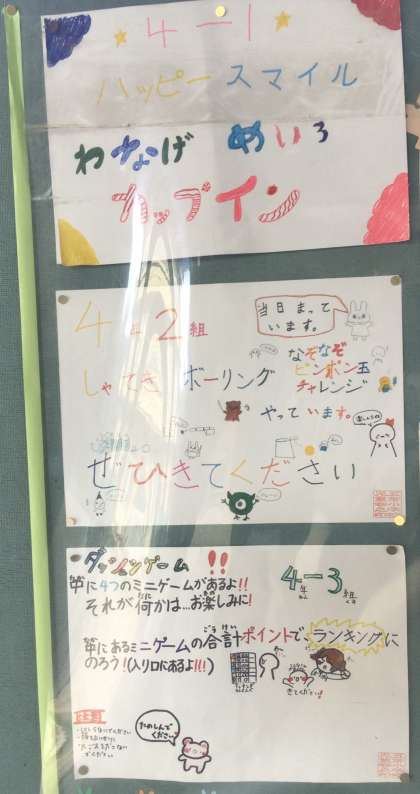 4-1
ハッピースマイル
わなげ めいろ
カップイン
4-2組
当日まって
います。
しゃてき ボーリング
なぞなぞ
ピンポン玉
チャレンジ
やっています。
ぜひきてください
ダッシュゲーム!!
4年-3組
ねん くみ
中に4つのミニゲームがあるよ!!
それが何かは…お楽しみに!
中にあるミニゲームの合計ポイントで、ランキングに
のろう!(入り口にあるよ!!!)
きてください!
たのしんで
ください!